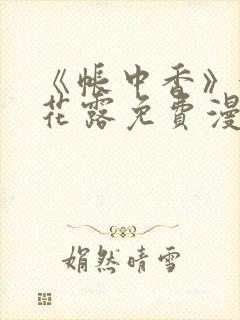 《帐中香》
花露免费漫
娟然晴雪